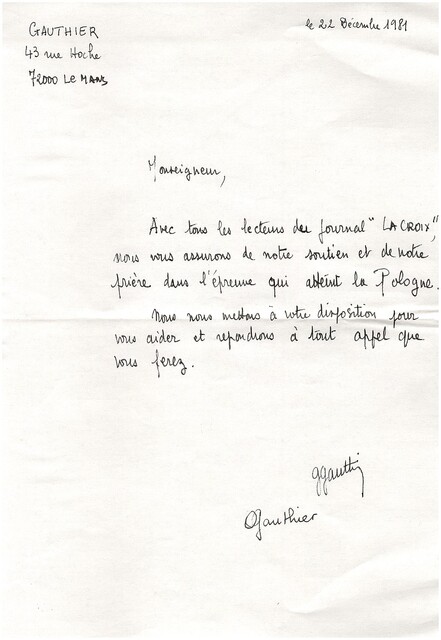 GAUTHIER
le 22 Décembre 1981
43 rue Hoche
72000 LE MANS
Monseigneur,
Avec tous les lecteurs du journal "LA CROIX",
nous vous assurons de notre soutien et de notre
prière dans l'épreuve qui atteint la Pologne.
Nous nous mettons à votre disposition pour
vous aider et repondrons à tout appel que
vous ferez.
ggauthi
OGauthier